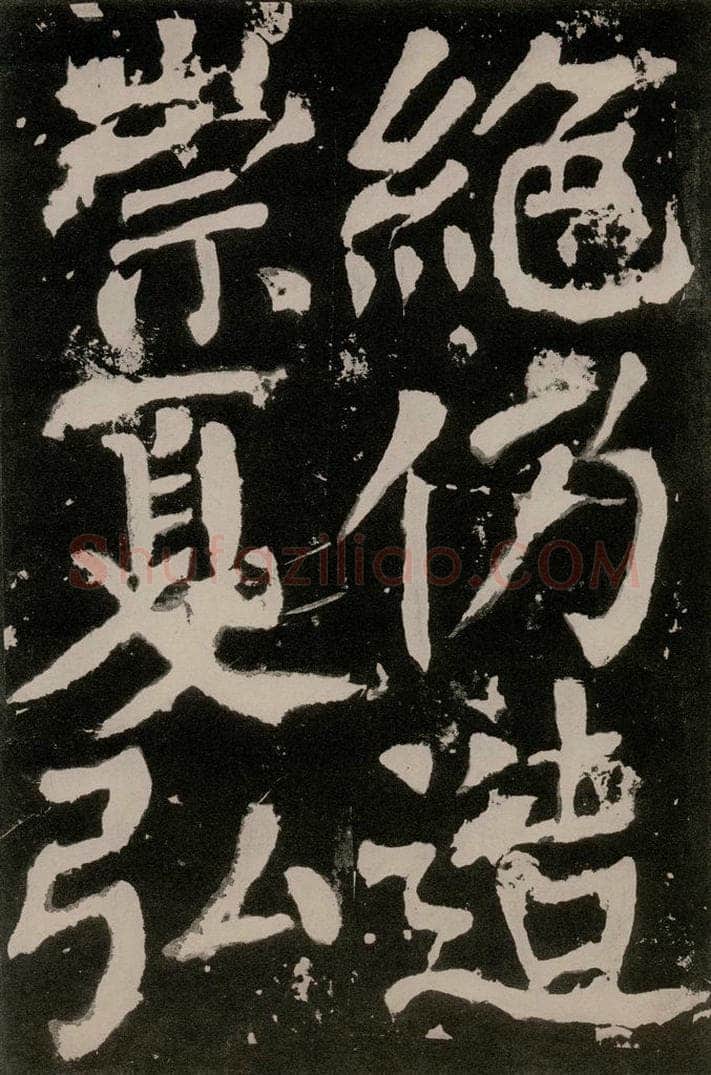 絶伪造
崇夏弘
Shufaziliao.COM